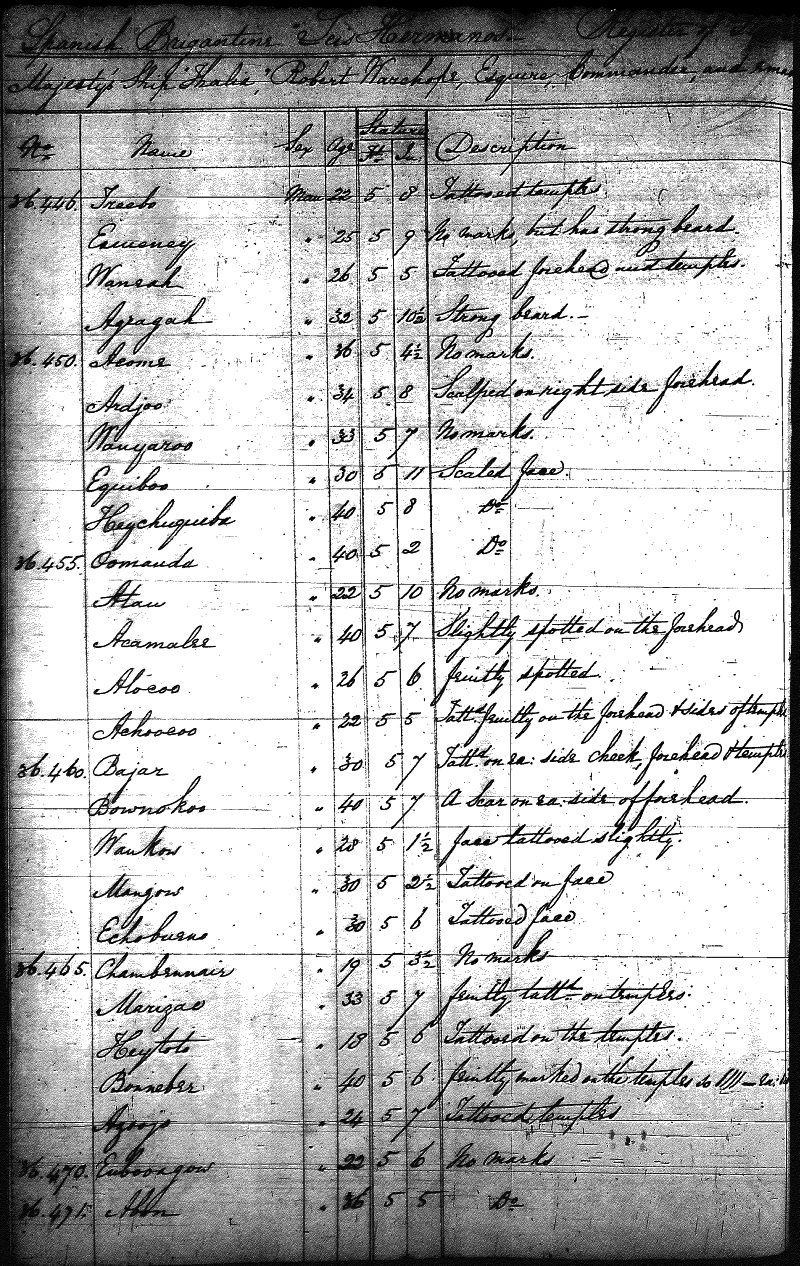 Spanish Brigantine "Seis Hermanos" Register of
Majesty's Ship "Thalia," Robert Wauchope, Esquire, Commander, and
No. Name Sex Age Stature Ft. In. Description
36.446. Treebo Man 22 5 8 Tattooed temples
Esweney " 25 5 9 No marks, but has strong beard.
Wansah " 26 5 5 Tattooed forehead and temples.
Agragah " 32 5 10½ Strong beard.—
36.450. Acome " 36 5 4½ No marks.
Ardjoo " 34 5 8 Scalped on right side forehead.
Wanyaroo " 33 5 7 No marks.
Equiboo " 30 5 11 Scaled face.
Heychuquiba " 40 5 8 Do
36.455. Oomanda " 40 5 2 Do
Atau " 22 5 10 No marks.
Acamalee " 40 5 7 Slightly spotted on the forehead
Alocoo " 26 5 6 feintly spotted
Achoocoo " 22 5 5 Tattd. feintly on the forehead & sides of temples
36.460. Bajar " 30 5 7 Tattd. on ea: side cheek, forehead & temples
Bownokoo " 40 5 7 A scar on ea: side of forehead.
Waukow " 28 5 1½ face tattooed slightly.
Mangow " 30 5 2½ Tattooed on face
Echobueno " 30 5 6 Tattooed face
36.465. Chambennair " 19 5 3½ No marks
Marizao " 33 5 7 feintly tattd. on temples.
Heytoto " 18 5 6 Tattooed on the temples.
Bonneber " 40 5 6 feintly marked on the temples so |||| — ea:
Azoojo " 24 5 7 Tattooed temples
36.470. Eubovagow " 22 5 6 No marks
36.471. Abon " 36 5 5 Do